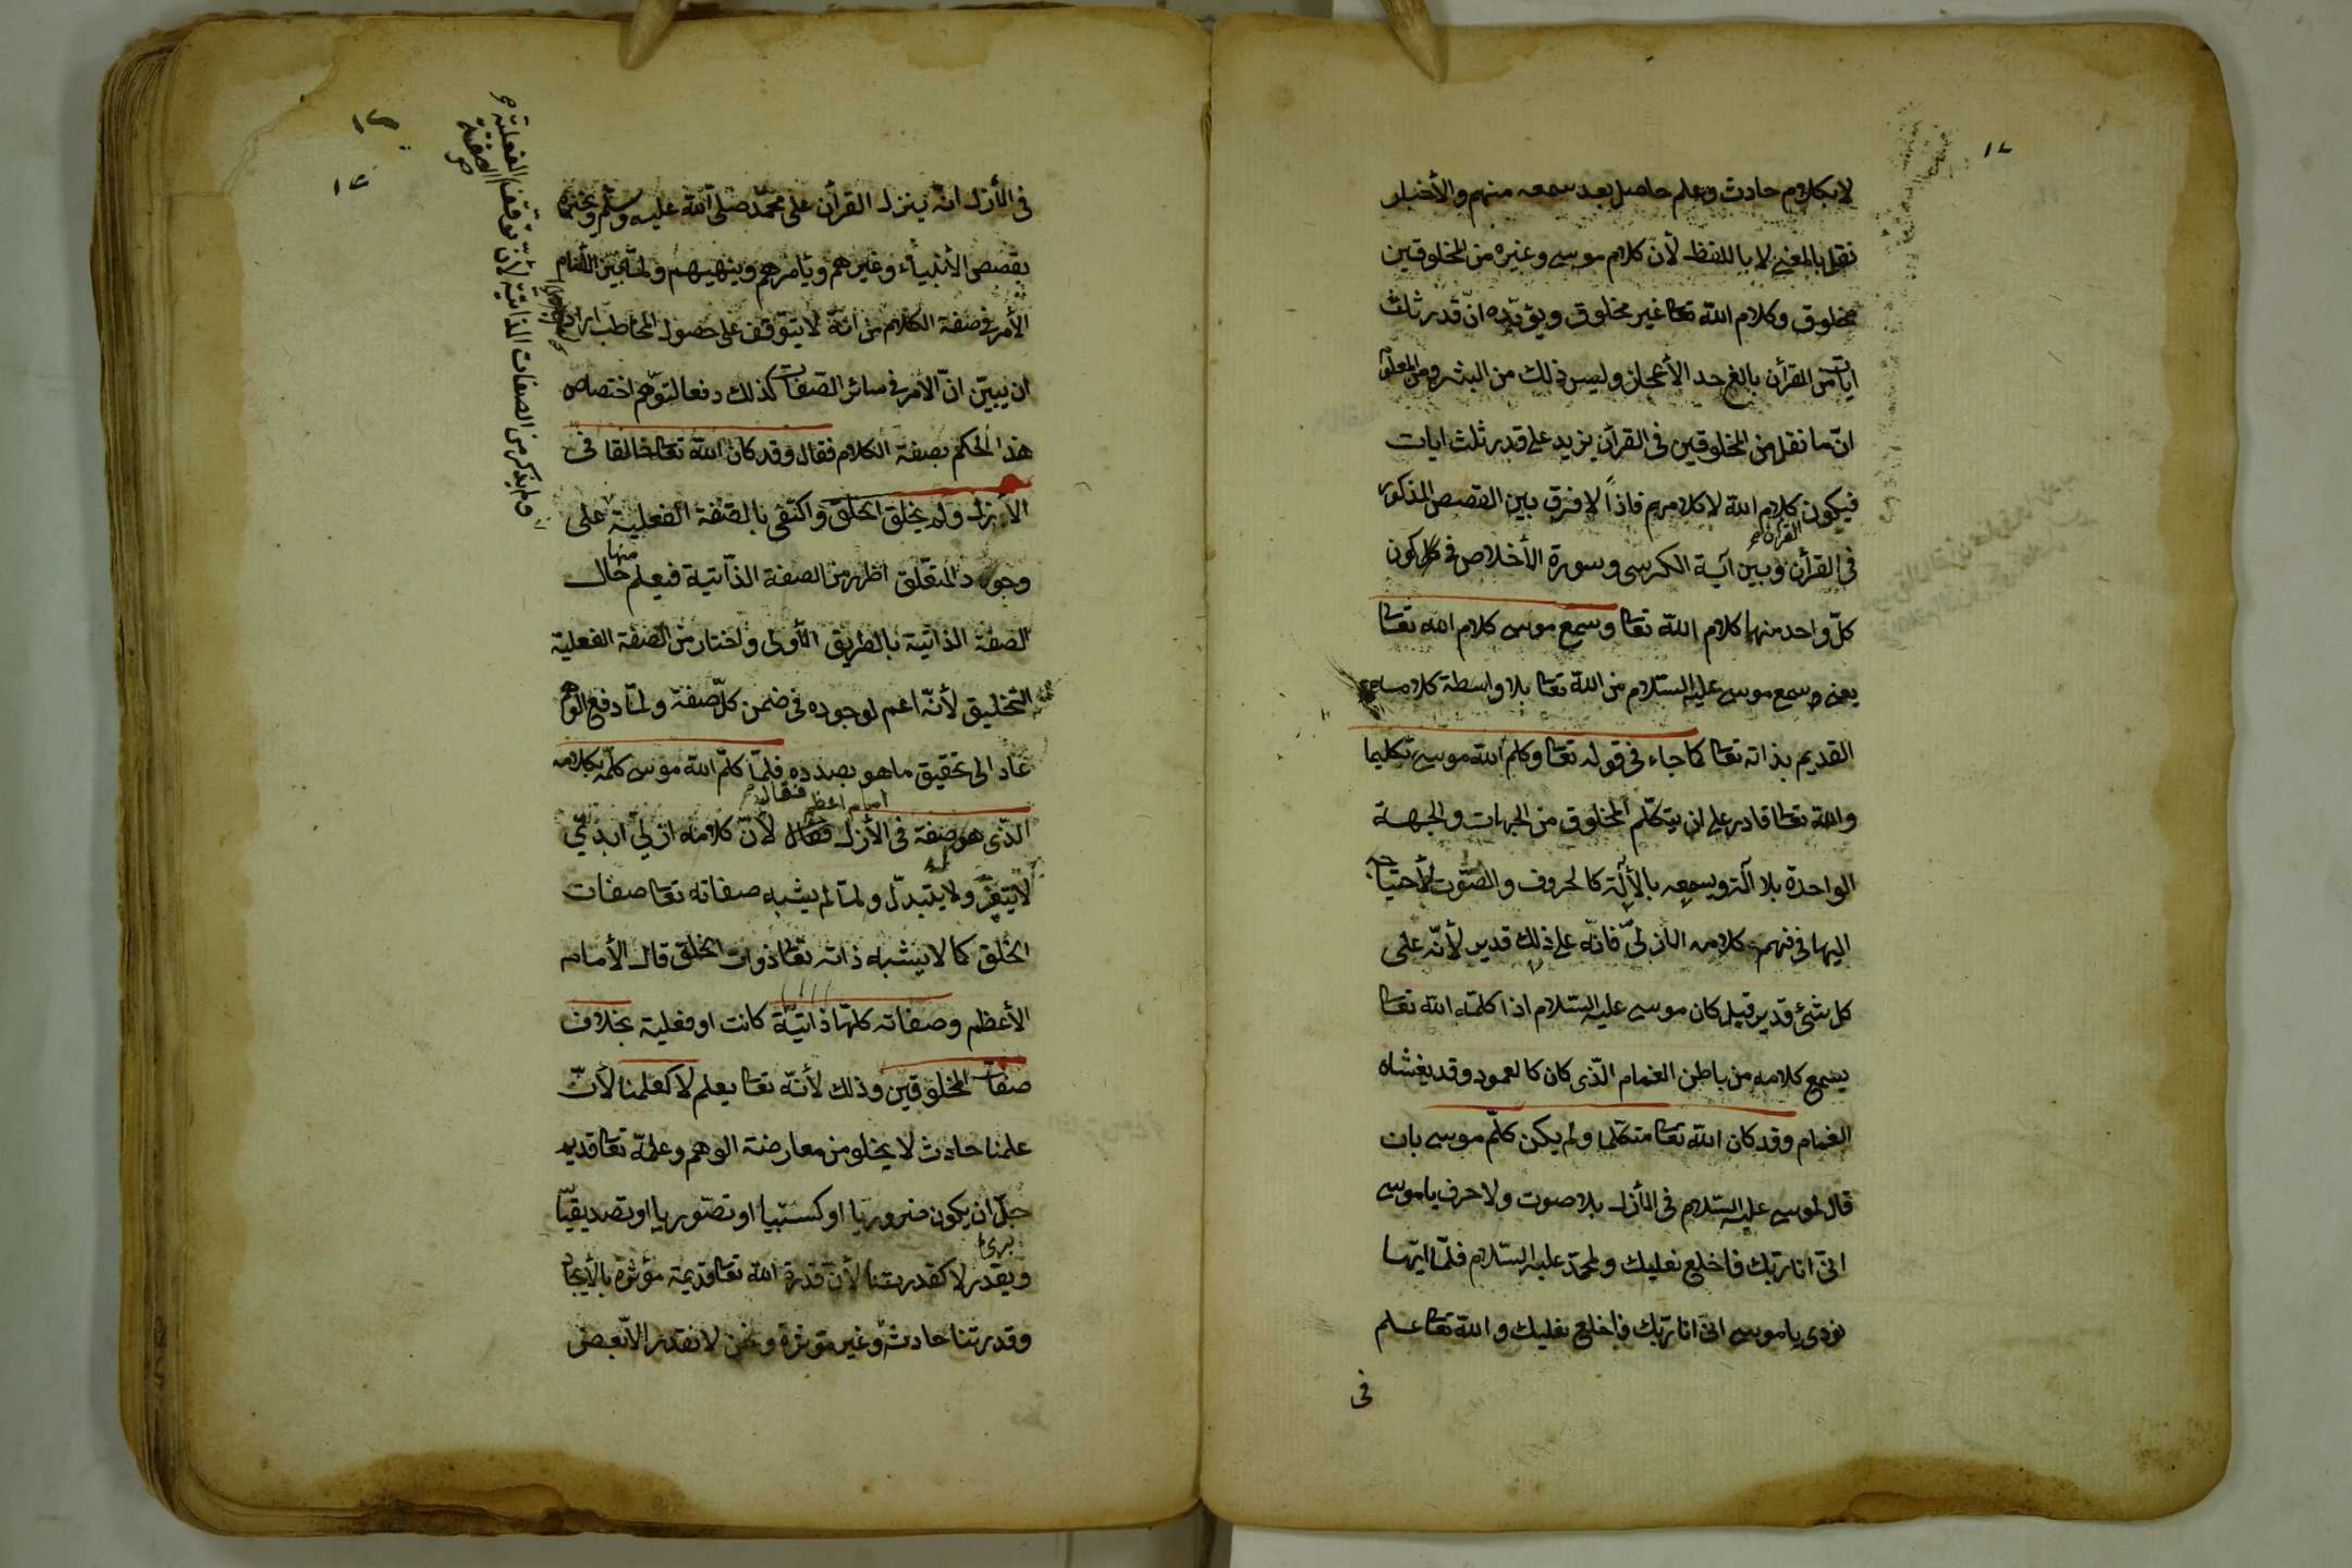 ١٧
لا بكلام حادث وعلم حاصل بعد سمعه منهم والأخبار
نقل بالمعنى لا باللفظ لأن كلام موسى وغيره من المخلوقين
مخلوق وكلام الله تعا غير مخلوق ويؤيّده انّ قدر ثلث
ايات من القرأن بالغ حد الأعجاز وليس ذلك من البشر ومن المعلوم
انّ ما نقل من المخلوقين في القرآن يزيد على قدر ثلث ايات
فيكون كلام الله لا كلامهم فاذاً لا فرق بين القصص المذكور
القرآن
في القرأن وبين آية الكرسى وسورة الأخلاص في كون
كلّ واحد منهما كلام الله تعا وسمع موسى كلام الله تعا
يعنى وسمع موسى عليه السّلام من الله تعا بلا واسطة كلامه
القديم بذاته تعا كما جاء في قوله تعا وكلم الله موسى تكليما
والله تعا قادر على ان يتكلّم المخلوق من الجهات والجهة
الواحدة بلا آلة ويسمعه بالألة كالحروف والصّوت لأحتياجه
اليها في فهم كلامه الأزلىّ فانّه على ذلك قدير لأنّه على
كل شئ قدير قيل كان موسى عليه السّلام اذا كلمّه الله تعا
يسمع كلامه من باطن الغمام الّذى كان كالعمود وقد يغشاه
الغمام وقد كان الله تعا متكلّما ولم يكن كلّم موسى بان
قال لموسى عليه السّلام في الأزل بلا صوت ولا حرف يا موسى
انّى انا ربّك فاخلع نعليك ولمحمّد عليه السّلام فلمّا اتيها
نودى يا موسى انى انا ربّك فاخلع نعليك والله تعا علم
فى
١٧
في الأزل انّه ينزل القرأن على محمّد صلّى الله عليه وسلّم ويخبره
بقصص الأنبياء وغيرهم ويأمرهم وينهيهم ولمّا بيّن الأمام
الأمر في صفة الكلام من انّه لا يتوقف على حصول المخاطب اراد
ان يبيّن انّ الأمر في سائر الصّفات كذلك دفعا لتوهّم اختصاص
هذا الحكم بصفة الكلام فقال وقد كان الله تعا خالقا في
الأزل ولم يخلق الخلق واكتفى بالصّفة الفعلية على
وجود المتعلّق اظهر من الصفة الذّاتية فيعلم منها حال
الصفة الذاتية بالطريق الأولى واختار من الصّفة الفعلية
التّخليق لأنّه اعم لوجوده في ضمن كلّ صفة ولمّا دفع الوهم
عاد الى تحقيق ما هو بصدده فلمّا كلّم الله موسى كلّمه بكلامه
امام اعظم فقال
الّذى هو صفة في الأزل فقال لأنّ كلامه ازليّ ابديّ
لا يتغيّر ولا يتبدّل ولمّا لم يشبه صفاته تعا صفات
الخلق كما لا يشبه ذاته تعا ذوات الخلق قال الأمام
الأعظم وصفاته كلهّا ذاتيّة كانت او فعلية بخلاف
صفات المخلوقين وذلك لأنّه تعا يعلم لا كعلمنا لأنّ
علمنا حادث لا يخلو من معارضة الوهم وعلمه تعا قديم
جلّ ان يكون ضروريا او كسبيا او تصوّريا او تصديقيّا
ويقدر لا كقدرتنا لأنّ قدرة الله تعا قديمة مؤثرة بالأيجاد
وقدرتنا حادثة وغير مؤثرة ونحن لا نقدر الّا بعض
ولم يذكر من الصفات الذاتية لأنّ توقف الفعلية
الصفة